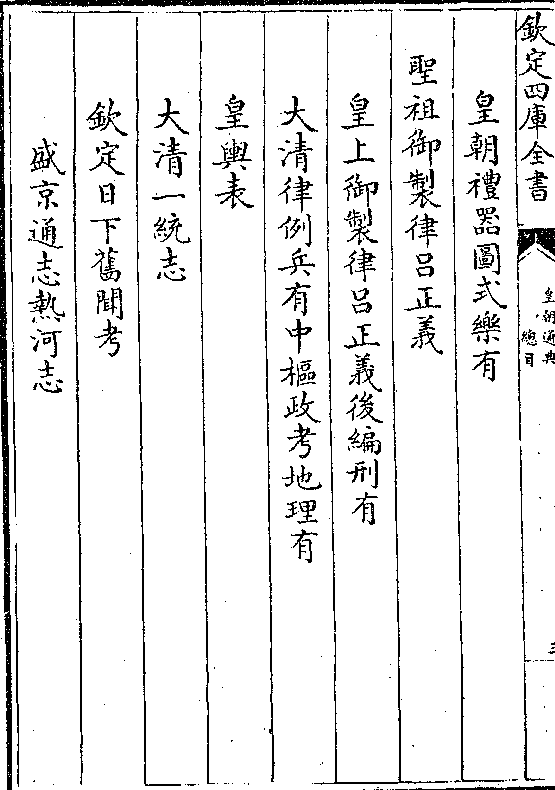 欽定四庫全書
皇朝通典
總目
皇朝禮器圖式樂有
聖祖御製律呂正義
皇上御製律呂正義後編刑有
大清律例兵有中樞政考地理有
皇輿表
大清一統志
欽定日下舊聞考
盛京通志熱河志